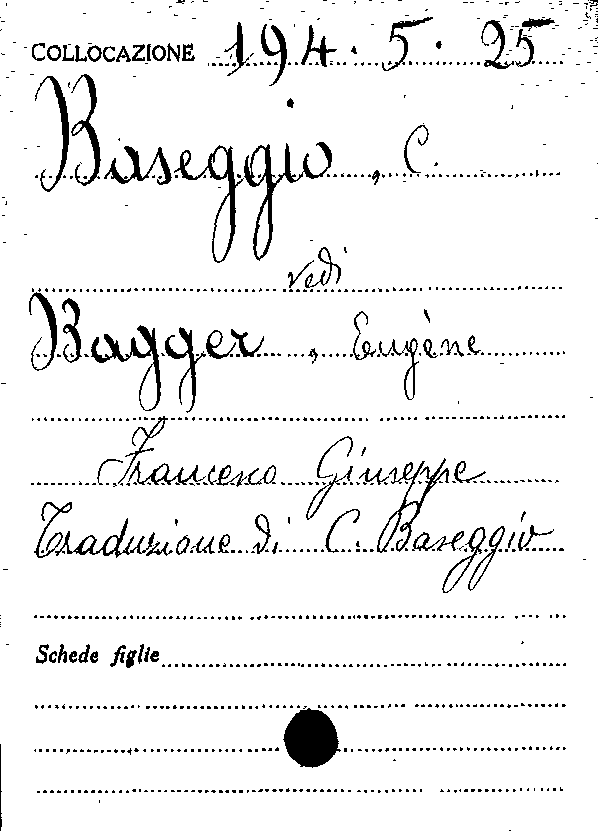 COLLOCAZIONE 194.5.25
Baseggio, C.
vedi
Bagger, Eugène
Francesco Giuseppe
Traduzione di C. Baseggio
Schede figlie